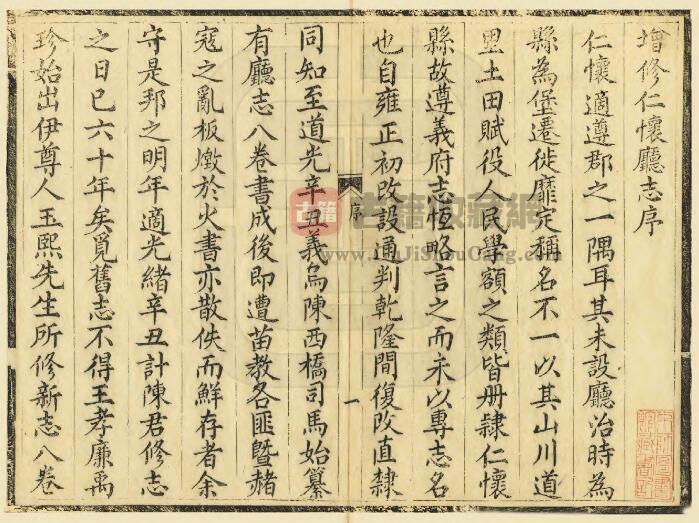 增修仁懷廳志序
仁懷適遵郡之一隅耳其未設廳治時為
縣為堡遷徙靡定稱名不一以其山川道
里土田賦役人民學額之類皆册隸仁懷
縣故遵義府志恆略言之而未以專志名
也自雍正初改設通判乾隆間復改直隸
序
一
同知至道光辛丑義烏陳西橋司馬始纂
有廳志八卷書成後即遭苗教各匪暨赭
寇之亂板燬於火書亦散佚而鮮存者余
守是邦之明年適光緒辛丑計陳君修志
之日已六十年矣覓舊志不得王孝廉禹
珍始出伊尊人玉熙先生所修新志八卷
古籍
古籍收藏網
www.GuJiShouCang.com